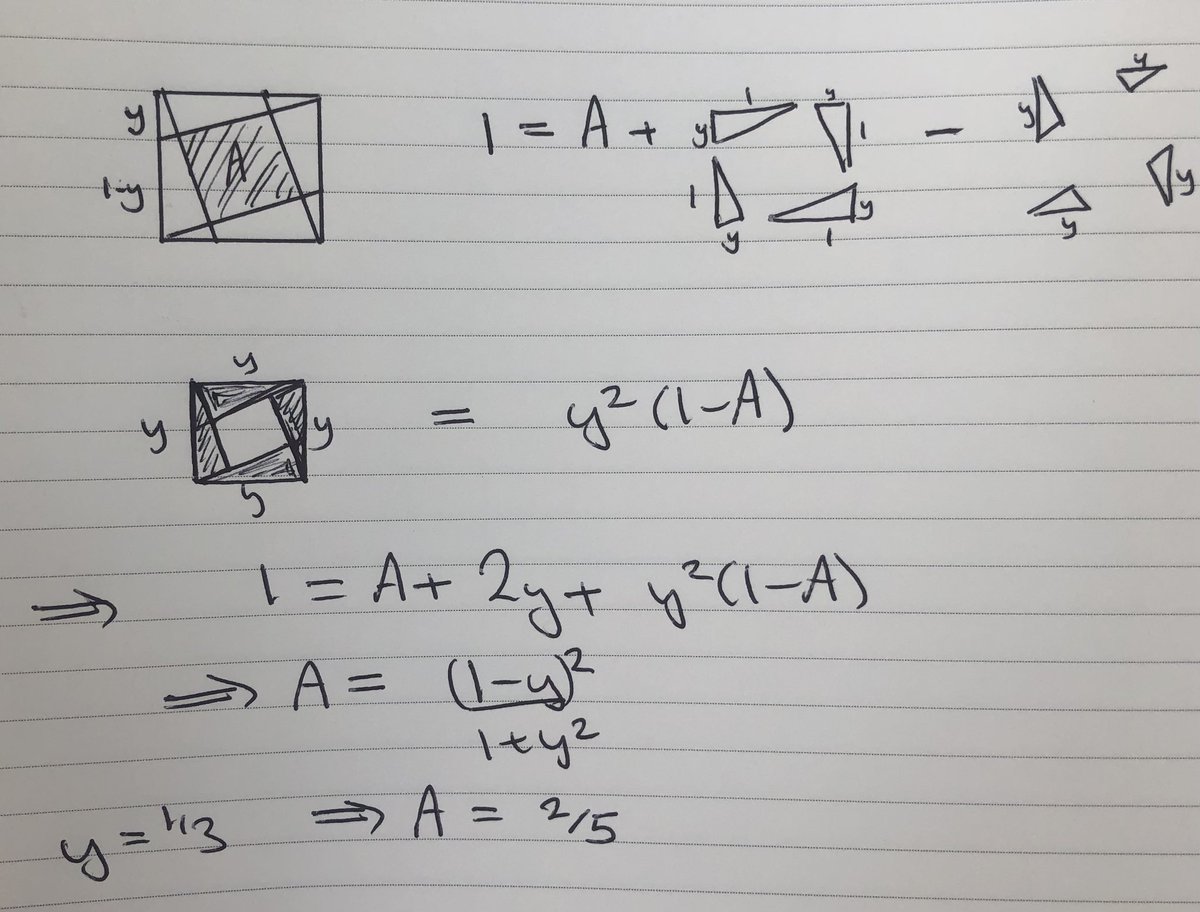 y
1-y
A
1 = A + y 1 y 1 - y y
1 y y 1 y y
y
y y = y²(1-A)
y
⇒ 1 = A + 2y + y²(1-A)
⇒ A = (1-y)²
1+y²
y = 1/3 ⇒ A = 2/5